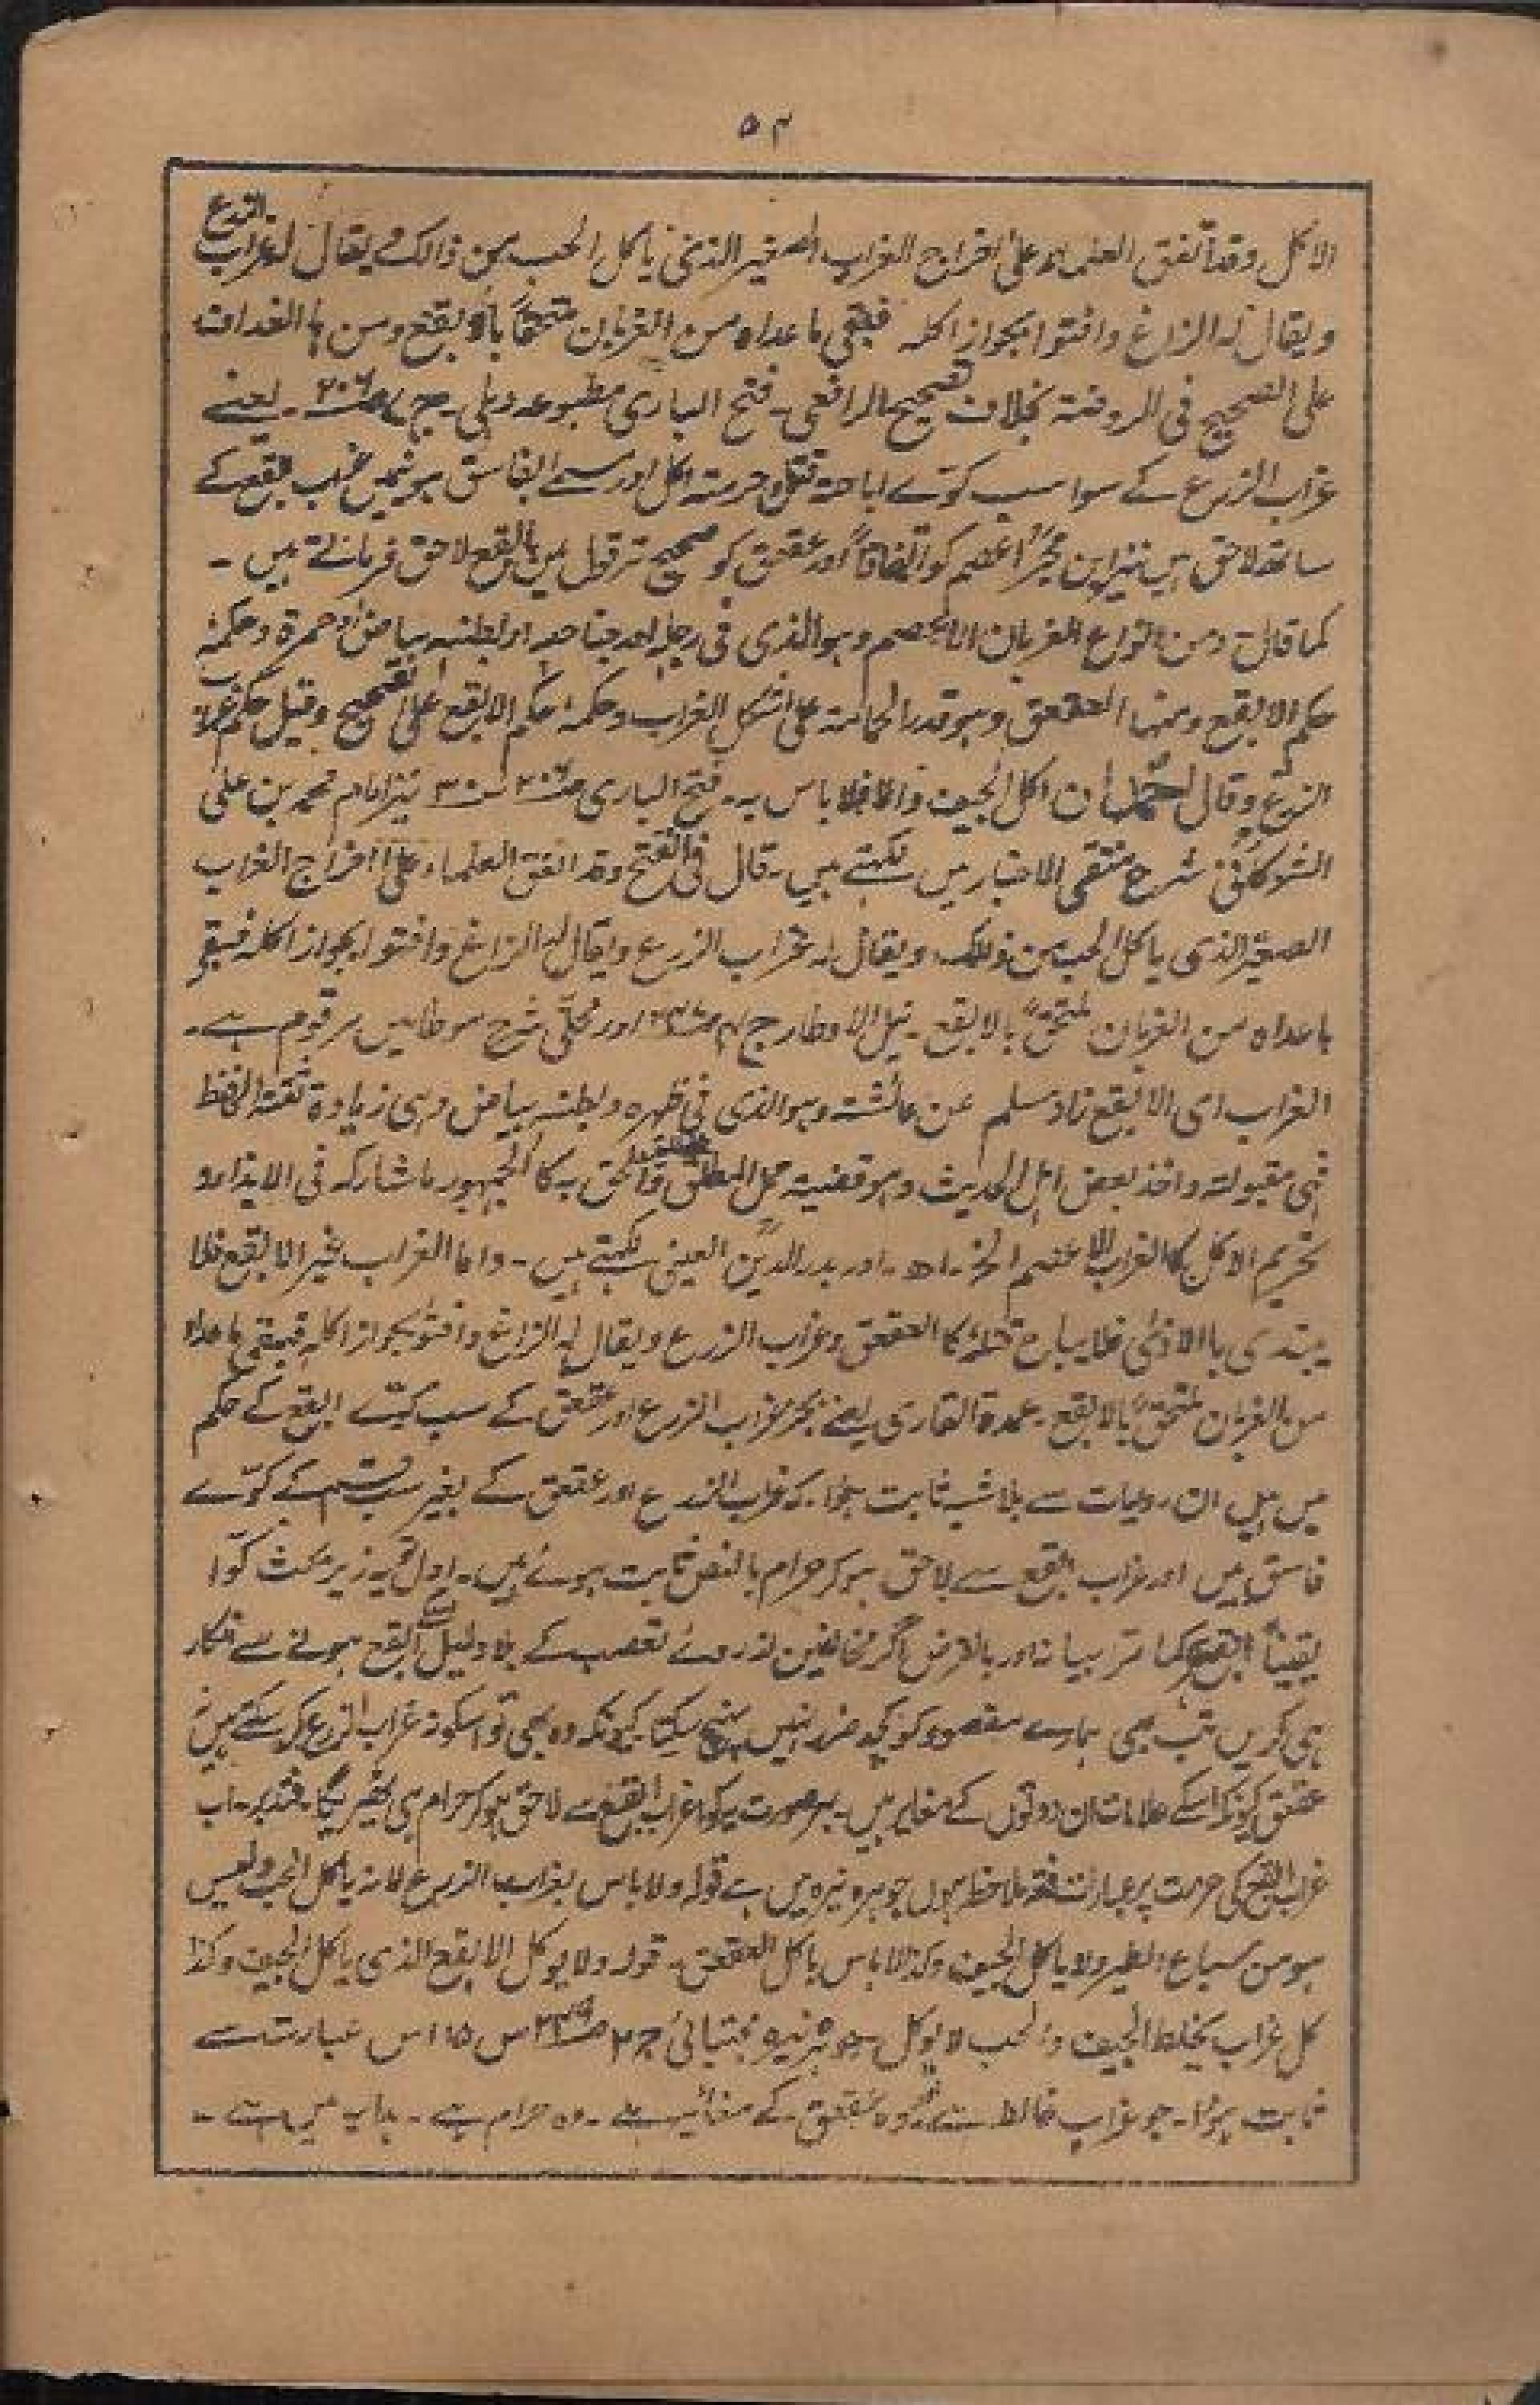 ۵۴
الاکل وقد اتفق العلماء علی اخراج الغراب الصغیر الذی یاکل الحب من ذالک ویقال لہ غراب الزرع
ویقال لہ الزاغ وافتوا بجواز اکلہ فبقی ما عداہ من الغربان ملتحقاً بالابقع ومن ہا الغداف
علی الصحیح فی الروضۃ بخلاف تصحیح الرافعی۔ فتح الباری مطبوعہ دہلی۔ ج یعنے
غراب الزرع کے سوا سب کوّے اباحۃ قتل وحرمتہ اکل اور سمے الفاسق ہونیمیں غراب ابقع کے
ساتھ لاحق ہیں نیز ابن حجرؒ اعصم کو اتفاقاً اور عقعق کو صحیح تر قول میں بابقع لاحق فرماتے ہیں۔
کما قال ومن انواع الغربان الاعصم وہوالذی فی رجلہ اوجناحہ اوبطنہ بیاض اوحمرۃ وحکمہ
حکم الابقع ومنہا العقعق وہوقدر الحمامۃ علی شکل الغراب وحکمہ حکم الابقع علی الصحیح وقیل حکم غراب
الزرع وقال احمد ان اکل الجیف والا فلا باس بہ۔ فتح الباری نیز امام محمد بن علی
الشوکانی شرح منتقی الاخبار میں لکہتے ہیں۔ قال فی الفتح وقد اتفق العلماء علی اخراج الغراب
الصغیر الذی یاکل الحب من ذلک۔ ویقال لہ غراب الزرع ویقال لہ الزاغ وافتوا بجواز اکلہ فبقی
ماعداہ من الغربان ملتحقً بالابقع۔ نیل الاوطار ج اور محلّی شرح موطا میں مرقوم ہے۔
الغراب ای الابقع زاد مسلم عن عائشتہ وہوالذی فی ظہرہ وبطنہ بیاض وہی زیادۃ ثقتہ الحفظ
فہی مقبولۃ واخذ بعض اہل الحدیث وہوقضیتہ حمل المطلق والحق بہ کا الجمہور ماشارکہ فی الایذاء و
تحریم الاکل کالغراب الاعصم الخ۔ اھ۔ اور بدرالدین العینی لکہتے ہیں۔ واما الغراب غیر الابقع فلا
یبتدی باالاذیٰ فلا یباح قتلہ کا العقعق وغراب الزرع ویقال لہ الزاغ وافتو بجواز اکلہ فبقی ماعداہ
من الغربان ملتحقً بالابقع۔ عمدۃ القاری یعنے بجز غراب الزرع اور عقعق کے سب کوّے ابقع کے حکم
میں ہیں ان روایات سے بلاشبہ ثابت ہؤا۔ کہ غراب الزرع اور عقعق کے بغیر سب قسم کے کوّے
فاسق ہیں اور غراب ابقع سے لاحق ہوکر حرام بالنص ثابت ہوئے ہیں۔ اول تو یہ زیر بحث کوّا
یقیناً ابقع کما تر بیانہ اور بالفرض اگر مخالفین ازروئے تعصب کے بلادلیل اسکے ابقع ہونے سے انکار
ہی کریں تب بھی ہمارے مقصود کو کچھ ضرر نہیں پہنچ سکتا کیونکہ وہ بھی تو اسکو نہ غراب الزرع کہہ سکتے ہیں نہ
عقعق کیونکہ اسکے علامات ان دونوں کے مغایر ہیں۔ بہر صورت یہ کوا غراب ابقع سے لاحق ہوکر حرام ہی ٹھیریگا۔ فتدبر۔ اب
غراب ابقع کی حرمت پر عبارات فقہ ملاحظہ ہوں جوہرہ نیرہ میں ہے قولہ ولاباس بغراب الزرع لانہ یاکل الحب ولیس
ہومن سباع الطیر ولا یاکل الجیف وکذا لاباس باکل العقعق۔ قولہ ولایوکل الابقع الذی یاکل الجیف وکذا
کل غراب یخلط الجیف والحب لایوکل جوہرہ نیرہ مجتبائی ج۲ س ۱۵ اس عبارت سے
ثابت ہؤا۔ جو غراب خالط ہے اور وہ عقعق کے مغائر ہے۔ وہ حرام ہے۔ ہدایہ میں ہے۔